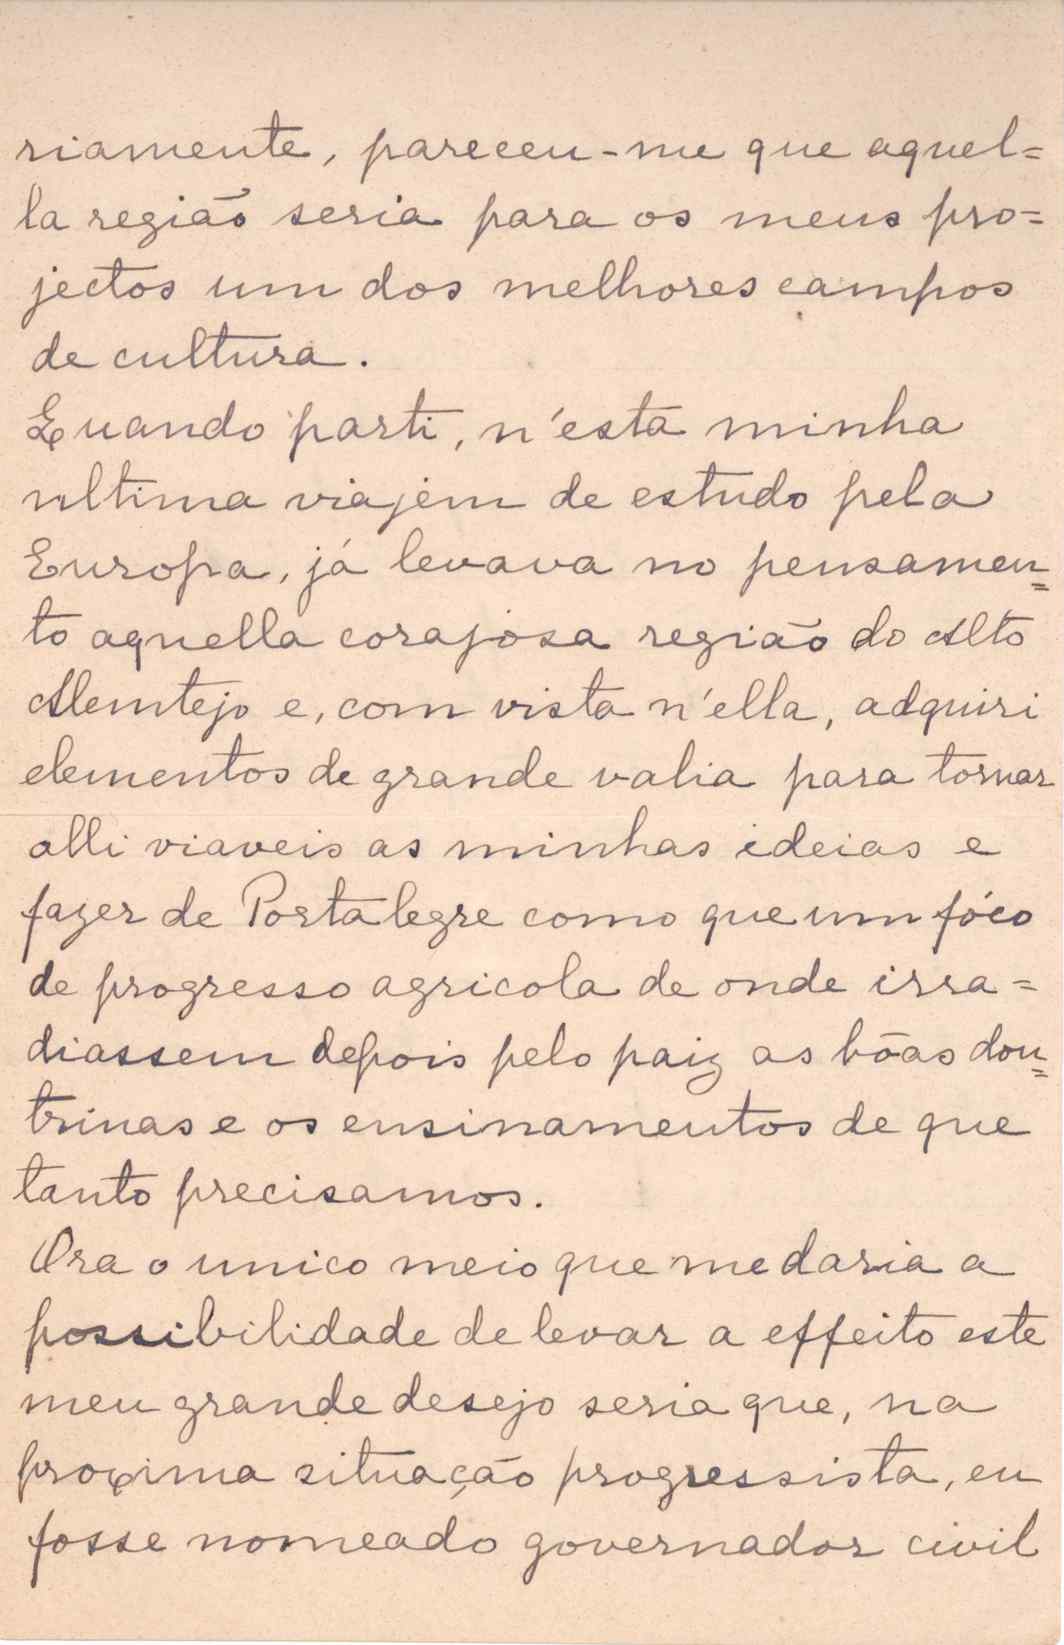 riamente, pareceu-me que aquel=
la região seria para os meus pro=
jectos um dos melhores campos
de cultura.
Quando parti, n'esta minha
ultima viajem de estudo pela
Europa, já levava no pensamen=
to aquella corajosa região do Alto
Alemtejo e, com vista n'ella, adquiri
elementos de grande valia para tornar
alli viaveis as minhas ideias e
fazer de Portalegre como que um fóco
de progresso agricola de onde irra=
diassem depois pelo paiz as bôas dou=
trinas e os ensinamentos de que
tanto precisamos.
Ora o unico meio que me daria a
possibilidade de levar a effeito este
meu grande desejo seria que, na
proxima situação progressista, eu
fosse nomeado governador civil